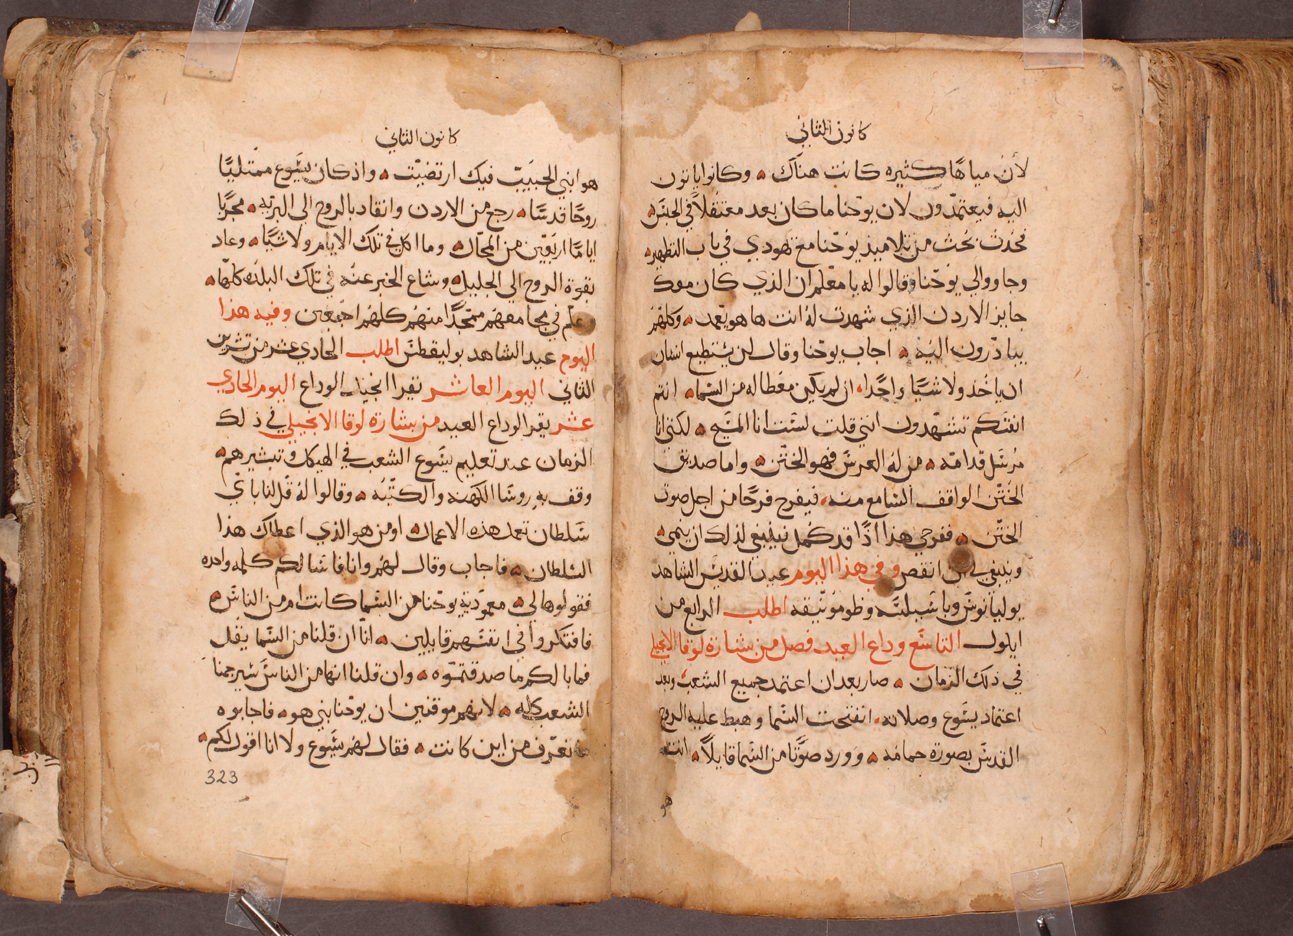 كانون الثاني
لأن مياهًا كثيره كانت هناك ۞ وكانوا ياتون
اليه فيعتمدون لان يوحنا ما كان بعد معتقلاً في الحبس
فحدث بحث من تلاميذ يوحنا مع يهودي في باب التطهير
وجاووالي يوحنا وقالوا له يا معلم ان الذي كان معك
جايز الاردن الذي شهدت له انت ها هو يعمد ۞ وكلهم
يبادرون اليه ۞ اجاب يوحنا وقال لن يستطيع انسان
ان ياخد ولا شيًا واحدًا ان لم يكن معطا له من السما ۞ انتم
انفسكم تشهدون انني قلت لست انا المسيح ۞ لكني انا
مرسل قدامه ۞ من له العرس فهو الختن ۞ واما صديق
الختن الواقف السامع منه، فيفرح فرحًا من اجل صوت
الختن ۞ ففرحي هذا اذًا قد كمل ينبغي لذلك ان ينمي ۞
وينبغي لي ان انقص وفي هذا اليوم عيد القديس الشاهد
يوليانوس وباسيلسه وطوموتيقه اطلب الرابع من
ايلول التاسع وداع العيد فصل من بشارة لوقا الانجيلي
في ذلك الزمان ۞ صار بعد ان اعتمد جميع الشعب وبعد
اعتماد يسوع وصلاته، انفتحت السما وهبط عليه الروح
القدس بصورة حمامه ۞ وورد صوتًا من السما قايلاً ۞ انت
هو
كانون الثاني
هو ابني الحبيب فيك ارتضيت ۞ واذ كان يسوع ممتليًا
روحًا قدسًا ۞ رجع من الاردن وانقاد بالروح الى البريه ۞ مجربًا
ايامًا اربعين من المحال ۞ وما اكل في تلك الايام ولا شيًا ۞ وعاد
بقوة الروح الى الجليل ۞ وشاع الخبر عنه في تلك البلده كلها ۞
وعلم في مجامعهم ممجدًا منهم كلهم اجمعين وفيه هذا
اليوم عيد الشاهد بوليفطس اطلب الحادي عشر من تشرين
الثاني اليوم العاشر يقرا انجيل الوداع اليوم الحادي
عشر يقرا لوداع العيد من بشارة لوقا الانجيلي في ذلك
الزمان عند تعليم يسوع الشعب في الهيكل وتبشيرهم ۞
وقف به روسا الكهنه والكتبه ۞ وقالوا له قل لنا باي
سلطان تعمل هذه الاعمال ۞ او من هو الذي اعطاك هذا
السلطان ۞ فاجاب وقال لهم وانا فاسالكم كلمه واحده
فقولوها لي ۞ معمودية يوحنا من السما كانت ام من الناس ۞
فافتكروا في انفسهم قايلين ۞ انّا ان قلنا من السما يقل
فما بالكم ما صدقتموه ۞ وان قلنا انها من الناس سيرجمنا
الشعب كله ۞ لانهم موقنين ان يوحنا نبي هو ۞ فاجابوه
ما نعرف من اين كانت ۞ فقال لهم يسوع ولا انا اقول لكم ۞
323